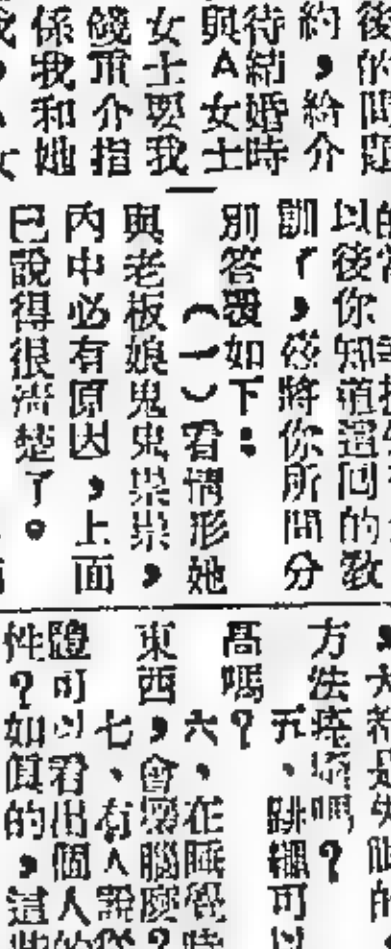 後的問題
約，給介
待結婚時
與A女士
女士要我
錢項介指
係我和她
以後你知道這回的教
訓了，茲將你所問分
別答覆如下：
（一）看情形她
與老板娘鬼鬼祟祟，
內中必有原因，上面
已說得很清楚了。
方法 嗎？
五、跳繩可以
高嗎？
六、在睡覺時
東西，會壞腦麼？
七、有人說從
體可以看出個人的
性？如眞的，這些